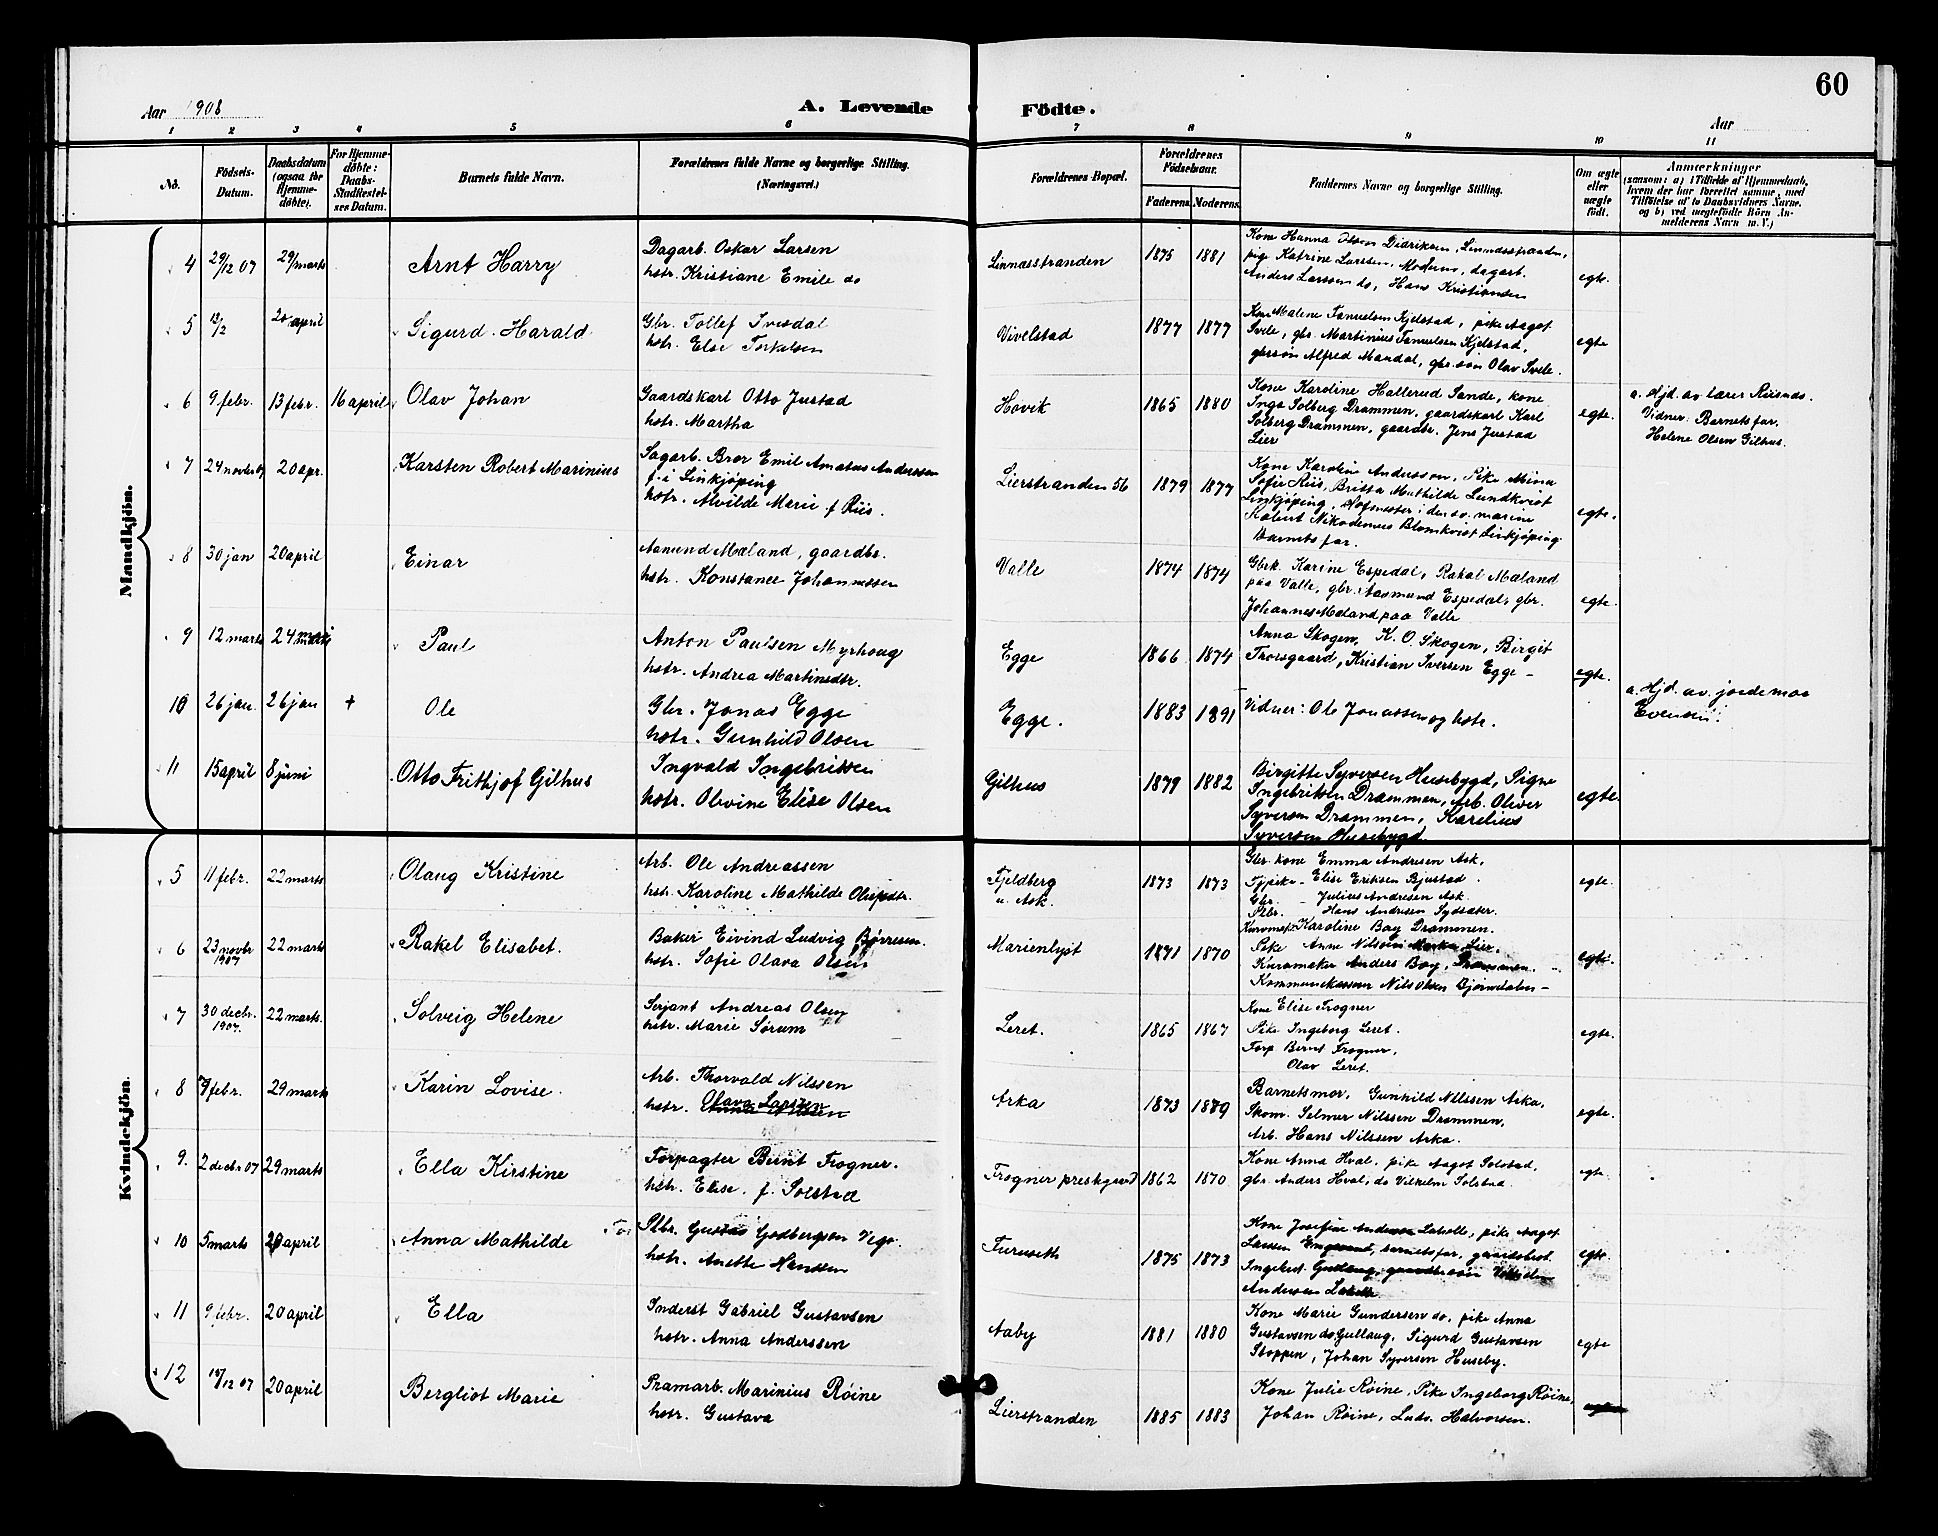 60
Aar 1908
A. Levende Födte.
Aar
1 2 3 4 5 6 7 8 9 10 11
No.
Födsels-Datum.
Daabsdatum (ogsaa for Hjemme-döbte).
For Hjemme-döbte: Daabs-Stadfæstel-ses Datum.
Barnets fulde Navn.
Forældrenes fulde Navne og borgerlige Stilling. (Næringsvei.)
Forældrenes Bopæl.
Forældrenes Födselsaar.
Faderens. Moderens.
Faddernes Navne og borgerlige Stilling.
Om ægte eller uægte födt.
Anmærkninger
(saasom: a) i Tilfælde af Hjemmedaab, hvem der har forrettet samme, med Tilföielse af to Daabsvidners Navne, og b) ved uægtefödte Börn An-melderens Navn m. V.)
Mandkjön.
4 29/12 07 29/marts Arnt Harry
Dagarb. Oskar Larsen
hstr. Kristiane Emilie do
Linnæsstranden 1875 1881
Kone Hanna Olsen Didriksen, Linnæsstranden,
pige Katrine Larsen, Moderen, dagarb.
Anders Larsen do, Hans Kristiansen
egte.
5 13/2 20 april Sigurd Harald
Gbr. Tollef Ivesdal
hstr. Else Torkelsen
Vivelstad 1877 1877
Kone Malene Tanuelsen Kjelstad, pike Aagot
Svele, gbr. Martinius Tanuelsen Kjelstad,
gbrsøn Alfred Mandal, gbr.søn Olav Svele.
egte
6 9 febr. 13 febr. 16 april Olav Johan
Gaardskarl Otto Justad
hstr. Martha
Hovik 1865 1880
Kone Karoline Hallerud Sande, kone
Inga Solberg Drammen, gaardskarl Karl
Solberg Drammen, gaardbr. Jens Justad
Lier
egte.
a. Hjd. av lærer Riisnæs.
Vidner: Barnets far,
Helene Olsen Gilhus.
7 24 novbr 07 20 apr. Karsten Robert Marinius
Sagarb. Bror Emil Amatus Andersson
f. i Linkjøping
hstr. Alvilde Marie f. Riis.
Lierstranden 56 1879 1877
Kone Karolin Andersson, Pike Mina
Sofie Riis, Britta Mathilde Lundkvist
Linkjöping, Hofmester i den sv. marine
Robert Nikodemus Blomkvist Linkjöping
Barnets far.
egte.
8 30 jan 20 april Einar
Aanund Mæland, gaardbr.
hstr. Konstance Johannessen
Valle 1874 1874
Gbrk. Karine Espedal, Rakal Mæland
paa Valle, gbr. Aasmund Espedal, gbr.
Johannes Mæland paa Valle
egte.
9 12 marts 24 marts Paul
Anton Paulsen Myrhoug
hstr. Andrea Martinsdtr.
Egge 1866 1874
Anna Skogen, K. O. Skogen, Birgit
Trovsgaard, Kristian Iversen Egge –
egte.
10 26 jan. 26 jan + Ole
Gbr. Jonas Egge
hstr. Gunhild Olsen
Egge. 1883 1891
Vidner: Ole Jonassen og hstr.
a. Hjd. av. jordemor
Evensen.
11 15 april 8 juni Otto Frithjof Gilhus
Ingvald Ingebritsen
hstr. Olivine Elise Olsen
Gilhus 1879 1882
Birgitte Syversen Husebygd, Signe
Ingebriksen Drammen, Arb. Oliver
Syversen Drammen, Karelius
Syversen Husebygd
egte.
Kvindekjön.
5 11 febr. 22 marts Olaug Kristine
Arb. Ole Andreassen
hstr. Karoline Mathilde Olispdtr.
Fjeldberg
u. Ask. 1873 1873
Gbr. kone Emma Andresen Ask,
Typike – Elise Eriksen Bjustad.
Gbr. – Julius Andresen Ask.
Plbr. Hans Andresen Sydsæter.
egte.
6 23 novbr 1907 22 marts Rakel Elisabet.
Baker Eivind Ludvig Børresen.
hstr. Sofie Olava Olsen
Marienlyst 1871 1870
Kurvmsk. Karoline Bay Drammen.
Pike Anne Nilsen Lier.
Kurvmaker Anders Bay, Drammen.
Kommunekasserer Nils Olsen Bjørndalen –
egte.
7 30 decbr. 1907. 22 marts. Solveig Helene
Serjant Andreas Olsen
hstr. Marie Sørum
Leret. 1865 1867
Kone Elise Frogner
Pike Ingeborg Leret.
Forp. Bernt Frogner,
Olav Leret.
egte.
8 9 febr. 29 marts Karin Lovise.
Arb. Thorvald Nilssen
hstr. Olava Larsen
Arka 1873 1879
Barnets mor, Gunhild Nilssen Arka,
Skom. Selmer Nilssen Drammen,
Arb. Hans Nilssen Arka.
egte.
9. 2 decbr 07 29 marts Ella Kirstine
Forpagter Bernt Frogner.
hstr. Elise, f. Solstad
Frogner prestegaard 1862 1870
Kone Anna Hval, pike Aagot Solstad,
gbr. Anders Hval, do Vilhelm Solstad.
egte.
10 5 marts 20 april Anna Mathilde
Plbr. Gustav Godbergsen Vego.
hstr. Anette Hansen
Furuseth 1875 1873
Kone Josefine Andersen Laholle, pike Aagot
Larsen Engesund, barnets far, gaardsbest.
Ingebrt. Gullaug, Vilhelm
Andersen
egte.
11 9 febr. 20 april Ella
Inderst Gabriel Gustavsen
hstr. Anna Anderssen
Aaby 1881 1880
Kone Marie Gundersen do, pike Anna
Gustavsen do Gullaug, Sigurd Gustavsen
Stoppen, Johan Syversen Huseby.
egte
12 19/12 07 20 april Bergliot Marie
Pramarb. Marinius Røine
hstr. Gustava
Lierstranden 1885 1883
Kone Julie Røine, Pike Ingeborg Røine,
Johan Røine, Ludv. Halvorsen.